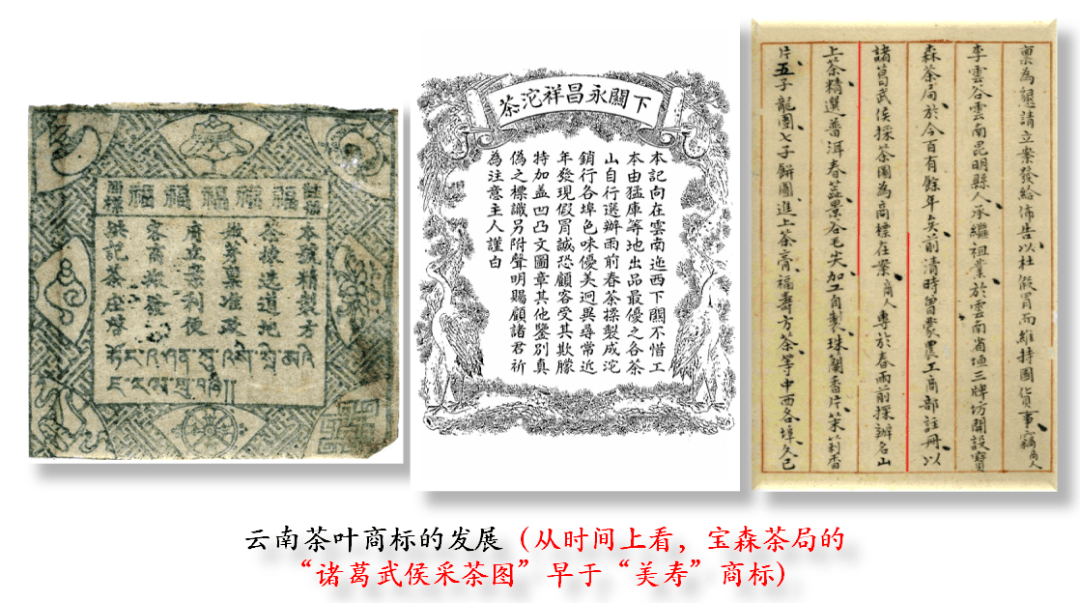 福福福福福
本號精製方
茶揀選道地
嫩芽稟准政
府立案刊
客商
記茶莊啓
下關永昌祥沱茶
本記向在雲南迤西下關不惜工
本由猛庫等地出品最優之各茶
山自行選辦雨前春茶揉製成沱
銷行各埠色味優美迥異尋常近
年發現假冒誠恐顧客受其欺朦
特加盖凹凸文圖章其他鑒別真
偽之標識另附聲明賜顧諸君祈
為注意主人謹白
稟為懇請立案發給佈告以杜假冒而維持國貨事竊商人
李雲谷雲南昆明縣人承繼祖業於雲南省垣三牌坊開設寶
森茶局於今百有餘年矣前清時曾蒙農工商部註冊以
諸葛武侯採茶圖為商標在案商人專於春雨前採辦名山
上茶精選普洱春蕊景谷毛尖加工自製珠蘭香片茉莉香
片五子龍團七子餅團進上茶膏福壽方茶等中西各埠久已
云南茶叶商标的发展（从时间上看，宝森茶局的
“诸葛武侯采茶图”早于“美寿”商标)